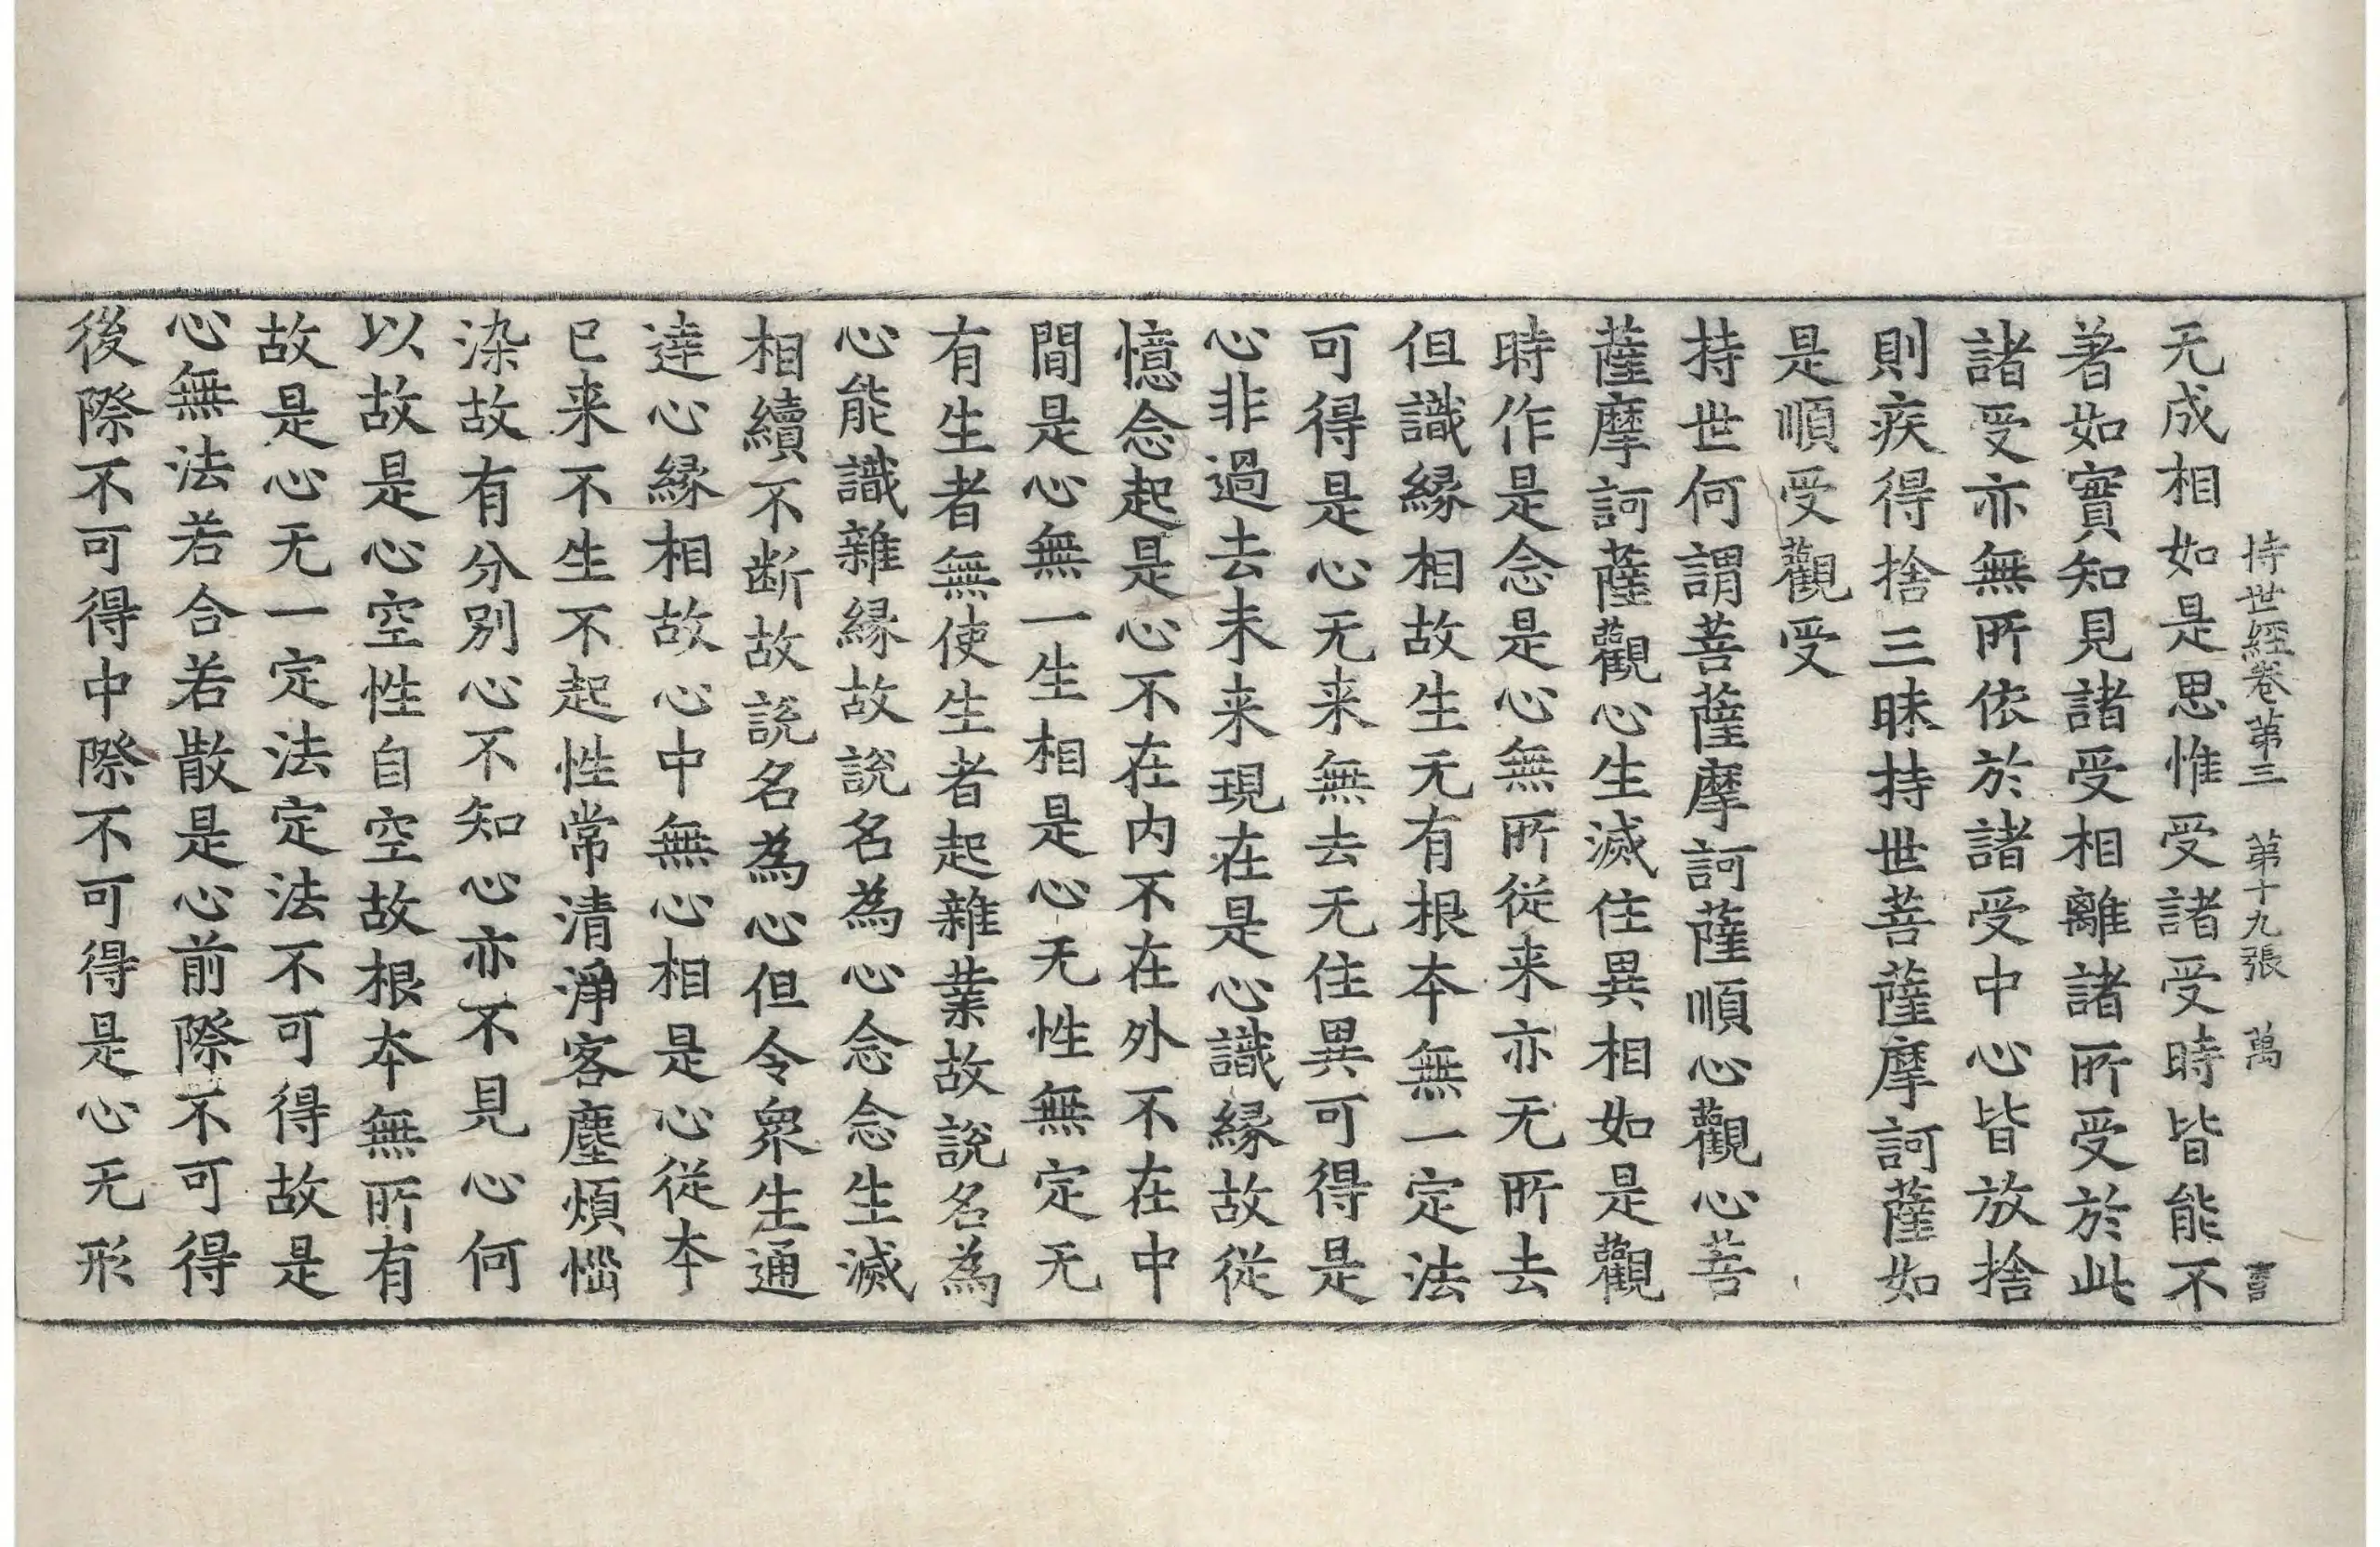 持世經卷第三 第十九張 萬
无成相如是思惟受諸受時皆能不
著如實知見諸受相離諸所受於此
諸受亦無所依於諸受中心皆放捨
則疾得捨三昧持世菩薩摩訶薩如
是順受觀受
持世何謂菩薩摩訶薩順心觀心菩
薩摩訶薩觀心生滅住異相如是觀
時作是念是心無所從来亦无所去
但識縁相故生无有根本無一定法
可得是心无来無去无住異可得是
心非過去未来現在是心識縁故從
憶念起是心不在内不在外不在中
間是心無一生相是心无性無定无
有生者無使生者起雜業故說名為
心能識雜縁故說名為心念念生滅
相續不断故說名為心但令衆生通
達心縁相故心中無心相是心從本
已来不生不起性常清淨客塵煩惱
染故有分別心不知心亦不見心何
以故是心空性自空故根本無所有
故是心无一定法定法不可得故是
心無法若合若散是心前際不可得
後際不可得中際不可得是心无形